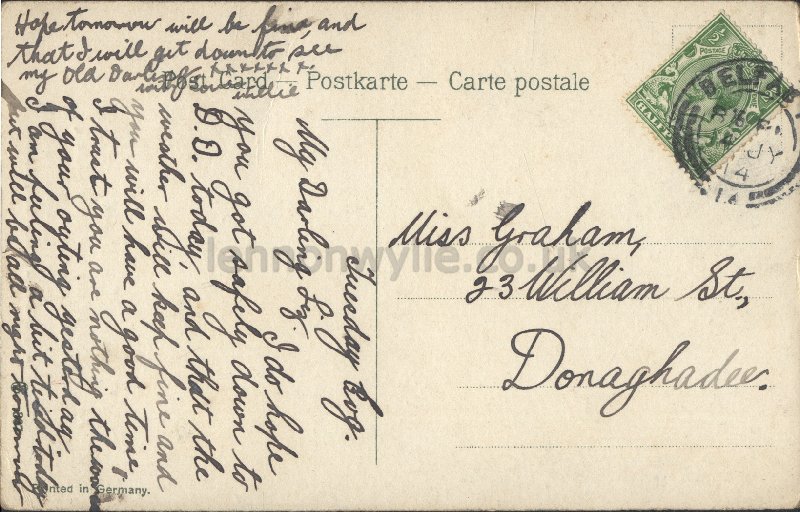 Post Card — Postkarte — Carte postale
Tuesday Evg.
My Darling Liz.
I do hope
you got safely down to
D.D. today, and that the
weather will keep fine and
you will have a good time,
I trust you are nothing the worse
of your outing yesterday
I am feeling a bit to-day
but will be all right to-morrow
Hope tomorrow will be fine, and
that I will get down to see
my Old Darling xxxxxxxx
with love Willie
Miss Graham,
23 William St.,
Donaghadee.
BELFAST
JY
14
1A
POSTAGE
HALFPENNY
Printed in Germany.
lennonwylie.co.uk